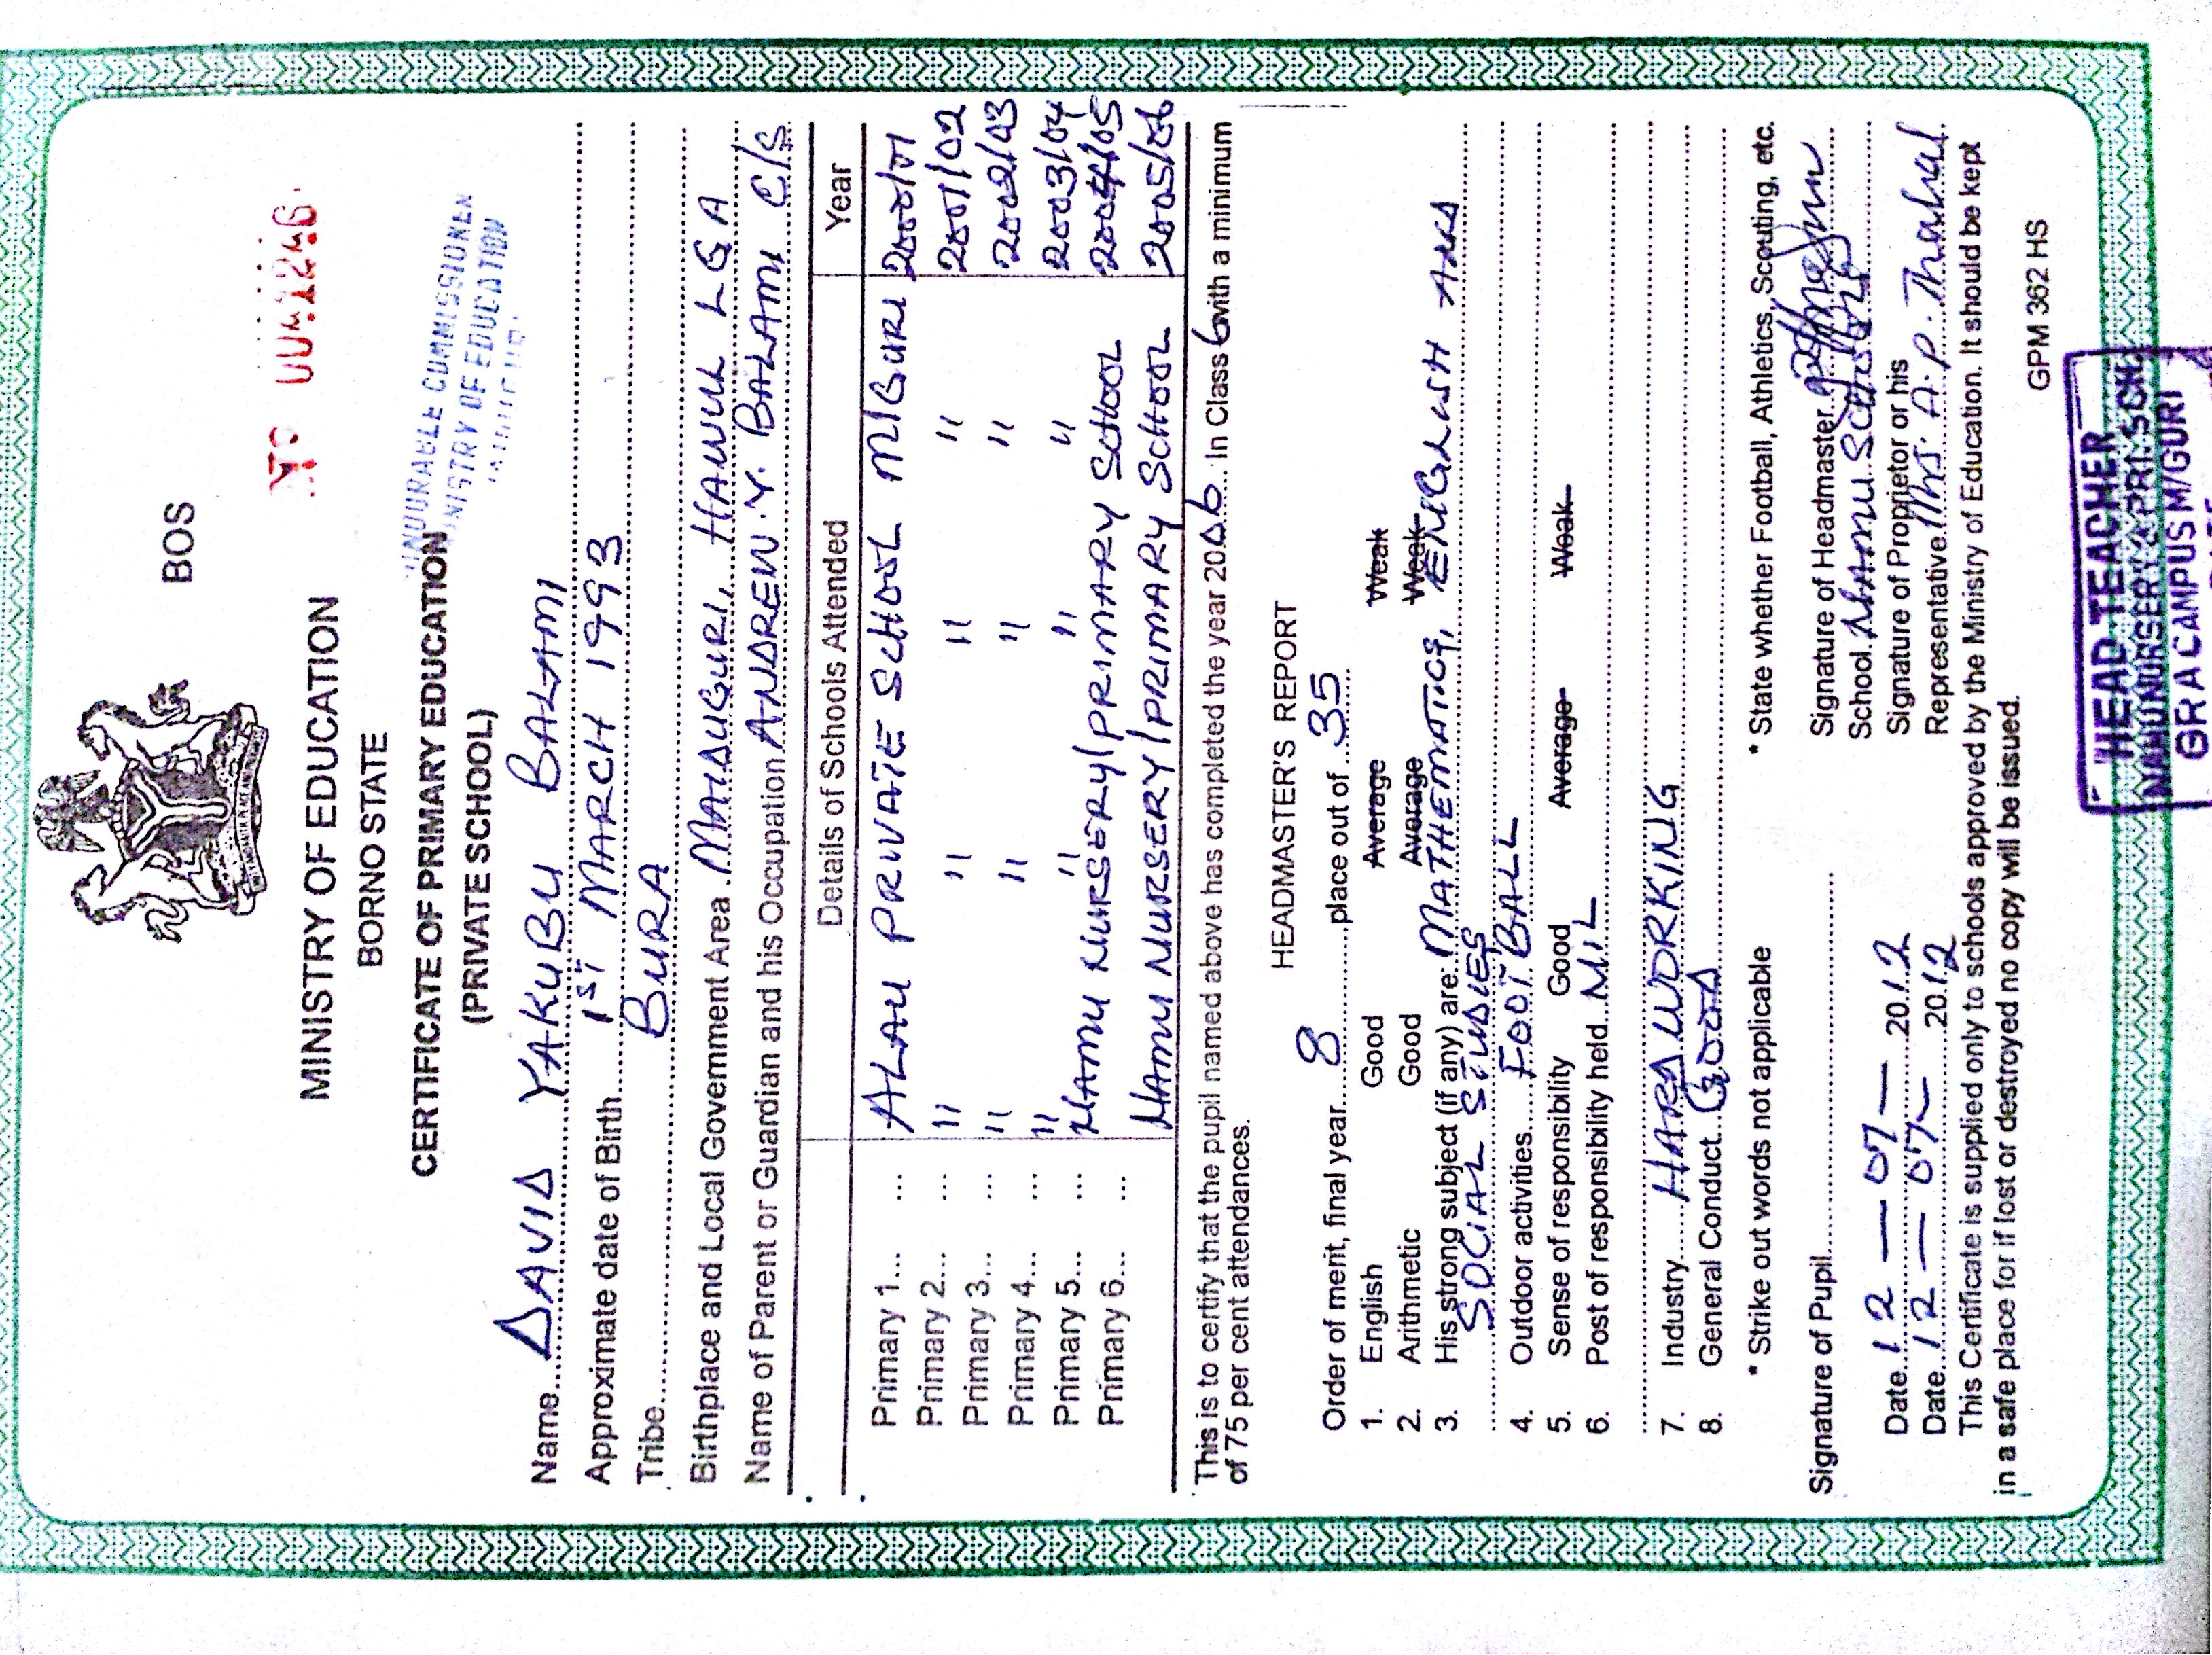 BOS
MINISTRY OF EDUCATION
BORNO STATE
CERTIFICATE OF PRIMARY EDUCATION
(PRIVATE SCHOOL)
COMMISSIONER
MINISTRY OF EDUCATION
Name DAVID YAKUBU BALAMI
Approximate date of Birth 1ST MARCH 1993
Tribe BURA
Birthplace and Local Government Area MAIDUGURI, HAWUL LGA
Name of Parent or Guardian and his Occupation ANDREW .Y. BALAMI C/S
Details of Schools Attended Year
Primary 1... ... ALAU PRIVATE SCHOOL M/GURI 2000/01
Primary 2... ... " " " " 2001/02
Primary 3... ... " " " " 2002/03
Primary 4... ... " " " " 2003/04
Primary 5... ... NAMU NURSERY/PRIMARY SCHOOL 2004/05
Primary 6... ... NAMU NURSERY/PRIMARY SCHOOL 2005/06
This is to certify that the pupil named above has completed the year 2006 In Class 6 with a minimum
of 75 per cent attendances.
HEADMASTER'S REPORT
Order of merit, final year 8 place out of 35
1. English Good Average Weak
2. Arithmetic Good Average Weak
3. His strong subject (if any) are MATHEMATICS, ENGLISH AND
SOCIAL STUDIES
4. Outdoor activities FOOTBALL
5. Sense of responsibility Good Average Weak
6. Post of responsibility held NIL
7. Industry HARDWORKING
8. General Conduct GOOD
* Strike out words not applicable * State whether Football, Athletics, Scouting, etc.
Signature of Pupil
Signature of Headmaster
School Namu
Signature of Proprietor or his
Representative Mrs. A. P.
Date 12 - 07 - 2012
Date 12 - 07 - 2012
This Certificate is supplied only to schools approved by the Ministry of Education. It should be kept
in a safe place for if lost or destroyed no copy will be issued.
GPM 362 HS
HEAD TEACHER
NAMU NURSERY & PRI. SCH.
GRA CAMPUS M/GURI